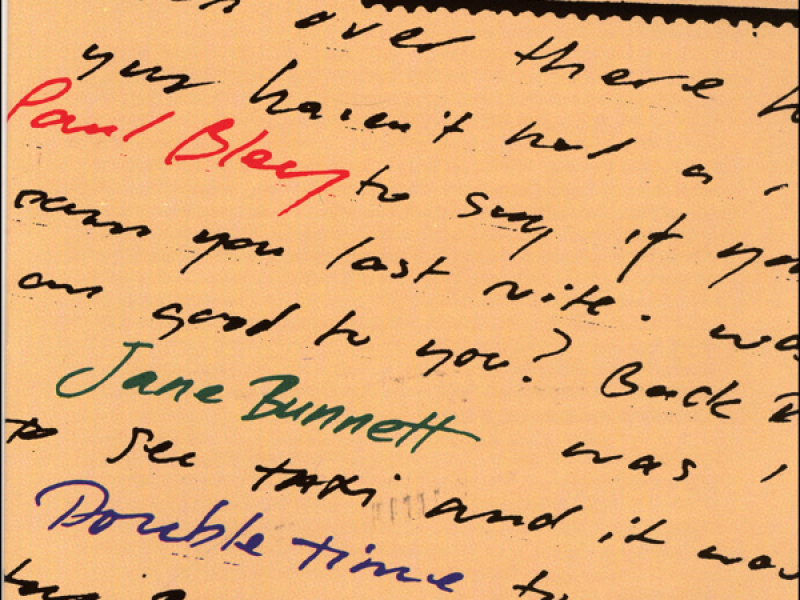 over there
haven't had a
Paul Bley to say if
you last nite.
good to you? Back
Jane Bunnett was
to see taxi and it was
Double time